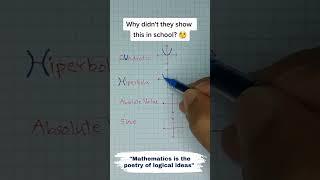 Why didn't they show
this in school? 🧐
QUadratic
Hiperbola
Absolute Value
Sine
"Mathematics is the
poetry of logical ideas"